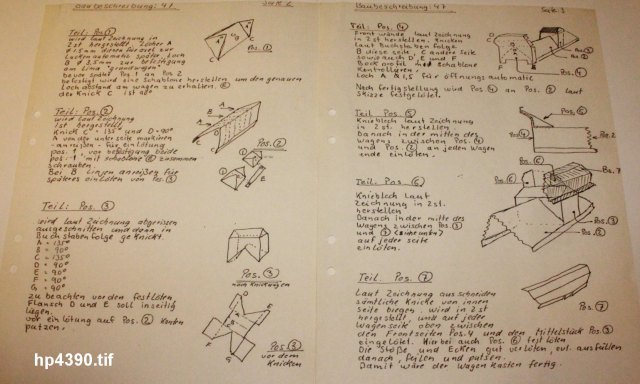 Baubeschreibung: 47. Seite 2
Teil: Pos. ①
wird laut Zeichnung in
2st hergestellt. Löcher A
Ø 1.5mm dienen für Seil zur
Lukenautomatic später. Loch
B Ø 3.5mm zur befestigung
am Lima
bevor später Pos 1 an Pos 2
befestigt wird eine Schablone herstellen um den genauen
Lochabstand am wagen zu erhalten.
der Knick C ist 90°
Pos. ①
Teil: Pos. ②
wird laut Zeichnung
2st hergestellt.
Knick C = 135° und D = 90°
A von der unterseite markieren
-anreißen- für einlötung
pos. 1, vor befestigung beide
pos. 1 mit schablone zusammen
schrauben.
Bei B Linien anreißen für
späteres einlöten von Pos. ③
Pos. ②
Teil: Pos. ③
wird laut Zeichnung abgerissen
ausgeschnitten und dann in
Buchstabenfolge geknickt.
A = 135°
B = 90°
C = 135°
D = 90°
E = 90°
F = 90°
G = 90°
zu beachten vor den festlöten
Flansch D und E soll inseitig
liegen.
vor einlötung auf Pos. ② Kanten
putzen.
Pos. ③
nach Knickungen
Pos. ③
vor dem
Knicken
Baubeschreibung: 47. Seite 3
Teil: Pos. ④
Frontwände laut Zeichnung
in 2st herstellen. Knicken
laut Buchstabenfolge.
B diese seite, C andere seite
sowie auch D, E und F
Bock profil mit schablone
Kontrollieren.
Loch A Ø 1,5 für öffnungsautomatic
Nach fertigstellung wird Pos. ④ an Pos. ③ laut
Skizze festgelötet.
Pos. ④
Teil Pos. ⑤
Knieblech laut Zeichnung
in 2st. herstellen.
Danach in der mitte des
Wagens zwischen Pos. ④
und Pos. ② an jeden Wagen
ende einlöten.
Pos. ⑤
Pos. 2
Teil Pos. ⑥
Knieblech Laut
Zeichnung in 2st.
herstellen
Danach in der mitte des
Wagens zwischen Pos. ③
und ② (siehe unten)
auf jeder seite
einlöten.
Pos. ⑥
Pos. 7
Pos. ③
Pos. ②
Teil Pos. ⑦
Laut Zeichnung ausschneiden
sämtliche Knicke von innen
seite biegen. wird in 2st
hergestellt, und auf jeder
Wagenseite oben zwischen
den Frontseiten Pos. 4 und den Mittelstück Pos ③
eingelötet. Hierbei auch Pos. ⑥ festlöten
Die Stöße und Ecken gut verlöten, evt. ausfüllen
danach, feilen und putzen.
Damit wäre der Wagenkasten fertig.
Pos. ⑦
hp4390.tif